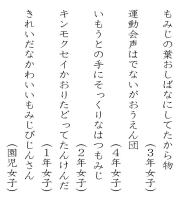 もみじの葉おしばなにしてたから物
（３年女子）
運動会声はでないがおうえん団
（４年女子）
いもうとの手にそっくりなはつもみじ
（２年女子）
キンモクセイかおりたどってたんけんだ
（１年女子）
きれいだなかわいいもみじびじんさん
（園児女子）